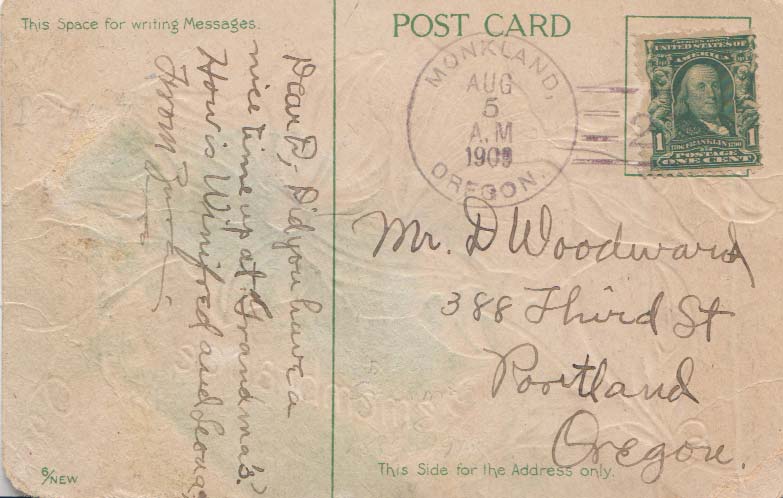 This Space for writing Messages.
POST CARD
MONKLAND,
AUG
5
A.M
OREGON.
SERIES 1902
UNITED STATES OF
AMERICA
1 1
FRANKLIN
POSTAGE
ONE CENT
2
Dear D, Did you have a
nice time up at Grandma's?
How is Winifred and
From
Mr. D Woodward
388 Third St
Portland
Oregon.
6/NEW
This Side for the Address only.